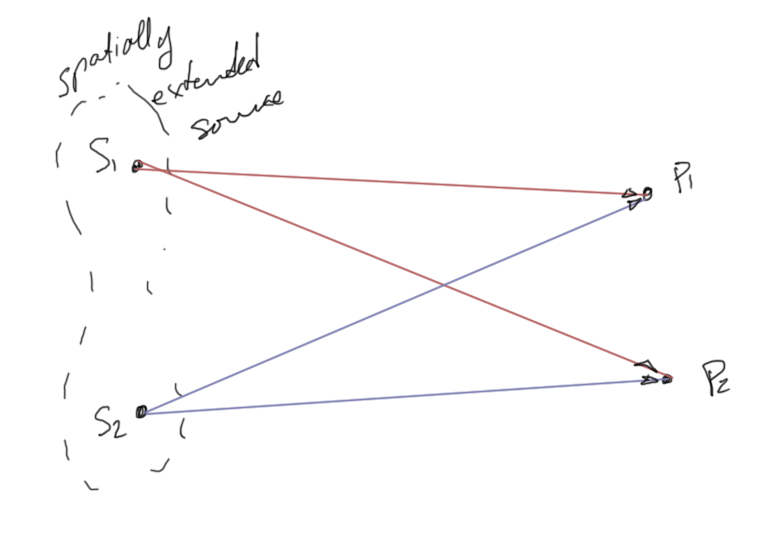 spatially
extended
source
S1
P1
P2
S2